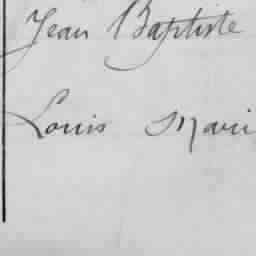 Jean Baptiste
Louis Mari